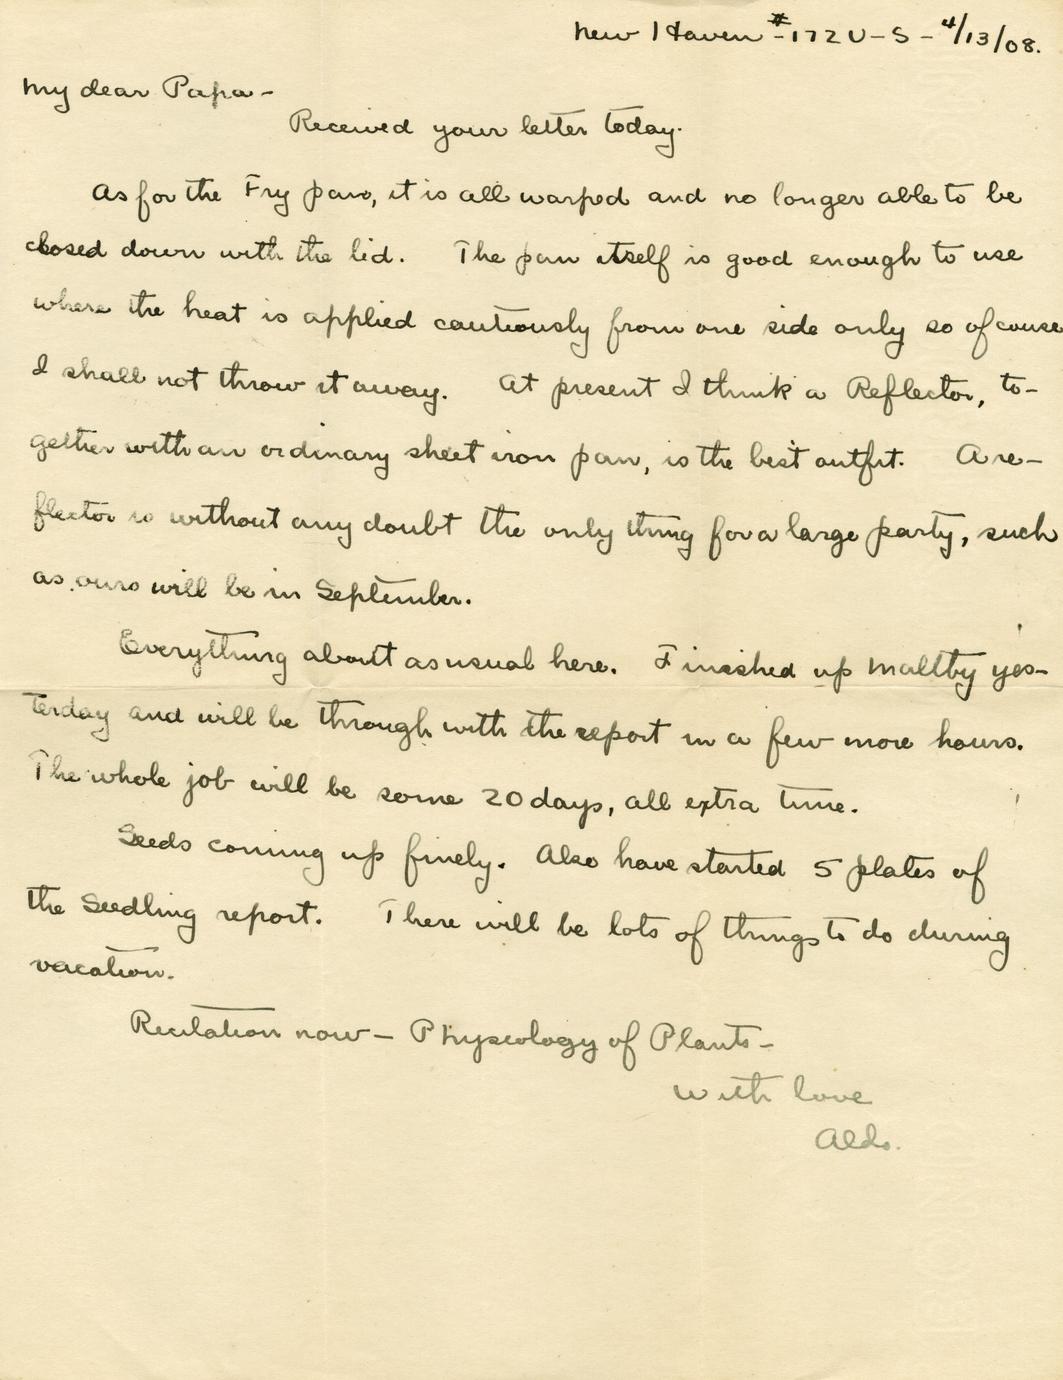 New Haven - #172 U-S - 4/13/08.
My dear Papa -
Received your letter today.
As for the Fry pan, it is all warped and no longer able to be
closed down with the lid. The pan itself is good enough to use
where the heat is applied cautiously from one side only so of couse
I shall not throw it away. At present I think a Reflector, to-
gether with an ordinary sheet iron pan, is the best outfit. A re-
flector is without any doubt the only thing for a large party, such
as ours will be in September.
Everything about as usual here. Finished up Maltby yes-
terday and will be through with the report in a few more hours.
The whole job will be some 20 days, all extra time.
Seeds coming up finely. Also have started 5 plates of
the Seedling report. There will be lots of things to do during
vacation.
Recitation now - Physiology of Plants -
With love
Aldo.